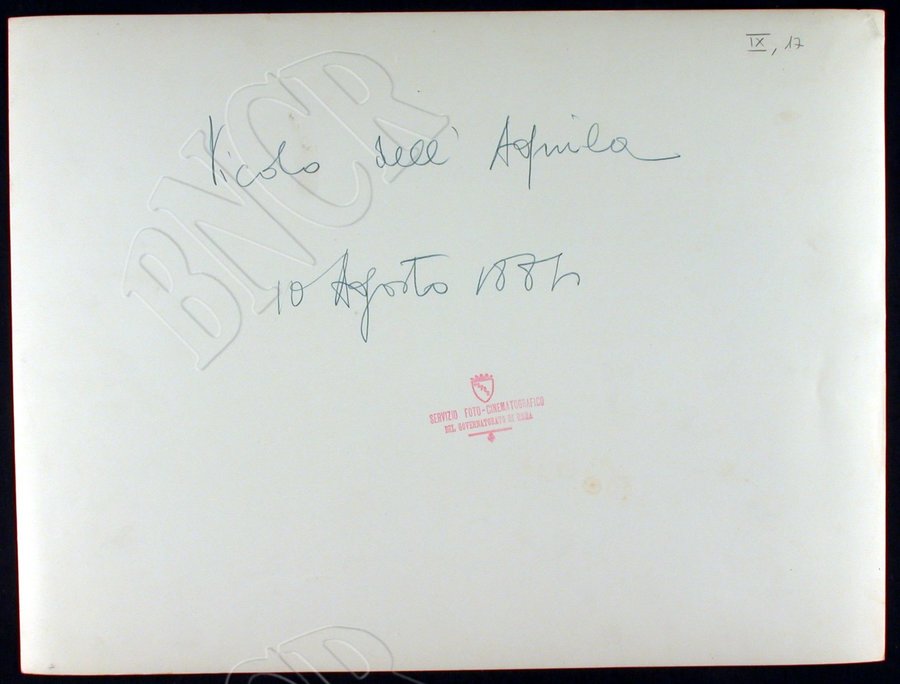 IX, 17
Vicolo dell' Aquila
10 Agosto 1884
BNCR
SERVIZIO FOTO-CINEMATOGRAFICO
DEL GOVERNATORATO DI ROMA